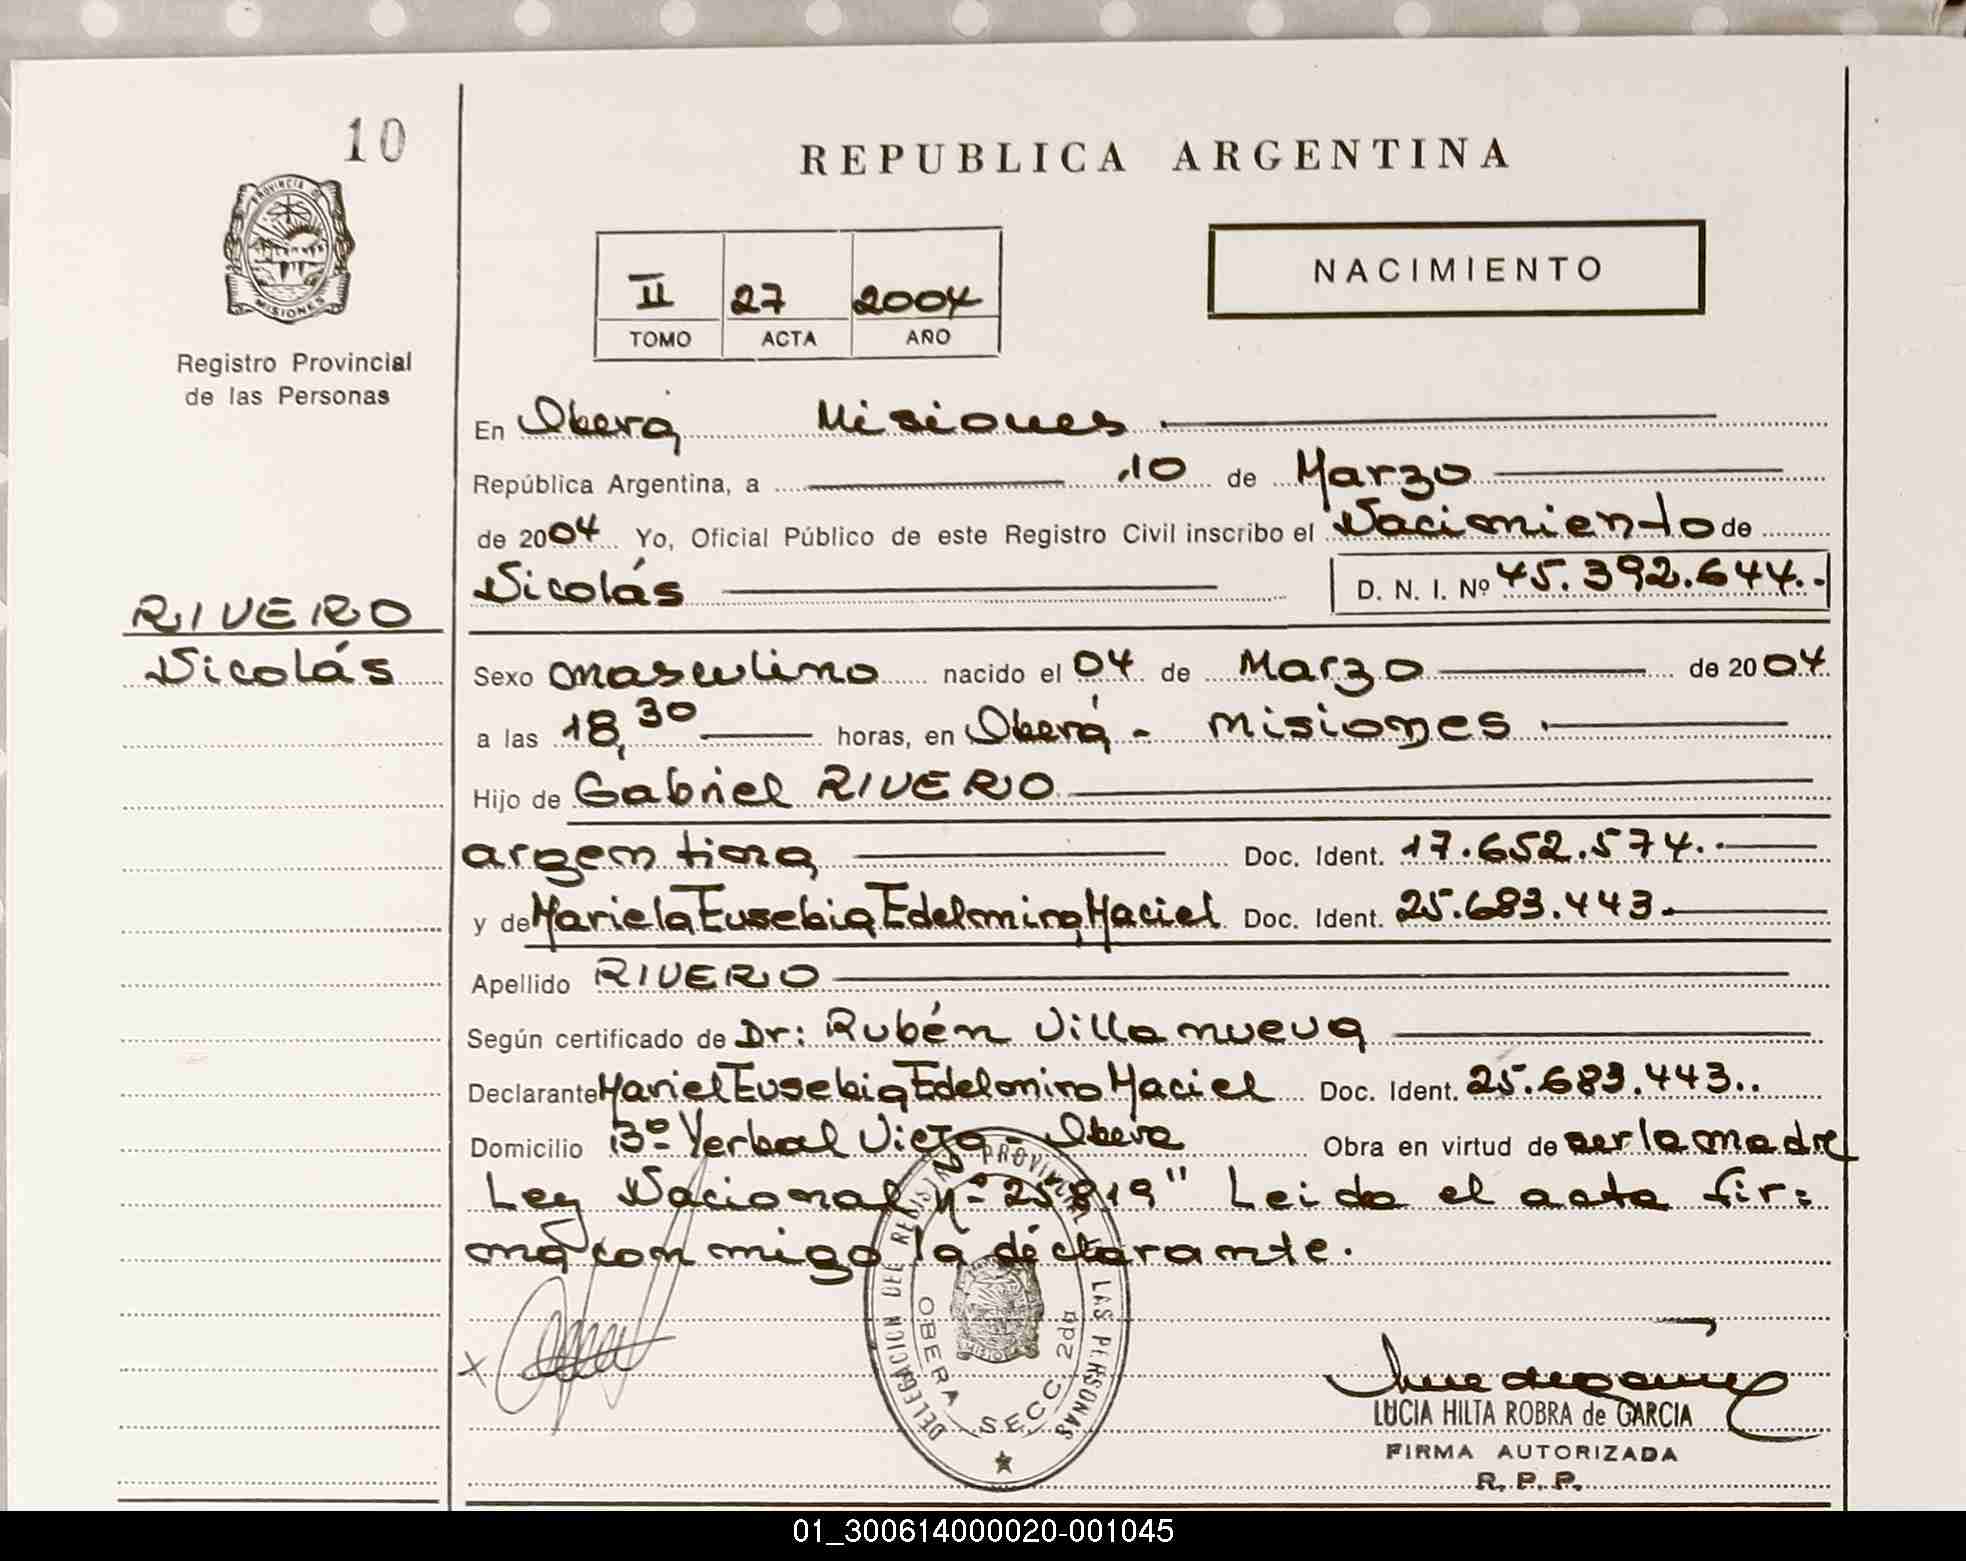 10
REPUBLICA ARGENTINA
PROVINCIA D
MISIONES
NACIMIENTO
II 27 2004
TOMO ACTA AÑO
Registro Provincial
de las Personas
En Oberá Misiones
República Argentina, a 10 de Marzo
de 2004 Yo, Oficial Público de este Registro Civil inscribo el Nacimiento de
Nicolás D. N. I. Nº 45.392.644.-
RIVERO
Nicolás
Sexo masculino nacido el 04 de Marzo de 2004
a las 18,30 horas, en Oberá - Misiones.
Hijo de Gabriel RIVERO
argentina Doc. Ident. 17.652.574.-
y de Mariela Eusebia Edelmira Maciel Doc. Ident. 25.683.443.
Apellido RIVERO
Según certificado de Dr: Rubén Villanueva
Declarante Mariel Eusebia Edelmira Maciel Doc. Ident. 25.683.443..
Domicilio Bº Yerbal Viejo - Obera Obra en virtud de ser la madre
Ley Nacional nº 25819" Leida el acta fir=
ma conmigo la declarante.
DELEGACION DEL REGISTRO PROVINCIAL DE LAS PERSONAS
OBERA SECC. 2da
MISIONES
X
LUCIA HILTA ROBRA de GARCIA
FIRMA AUTORIZADA
R.P.P.
01_300614000020-001045